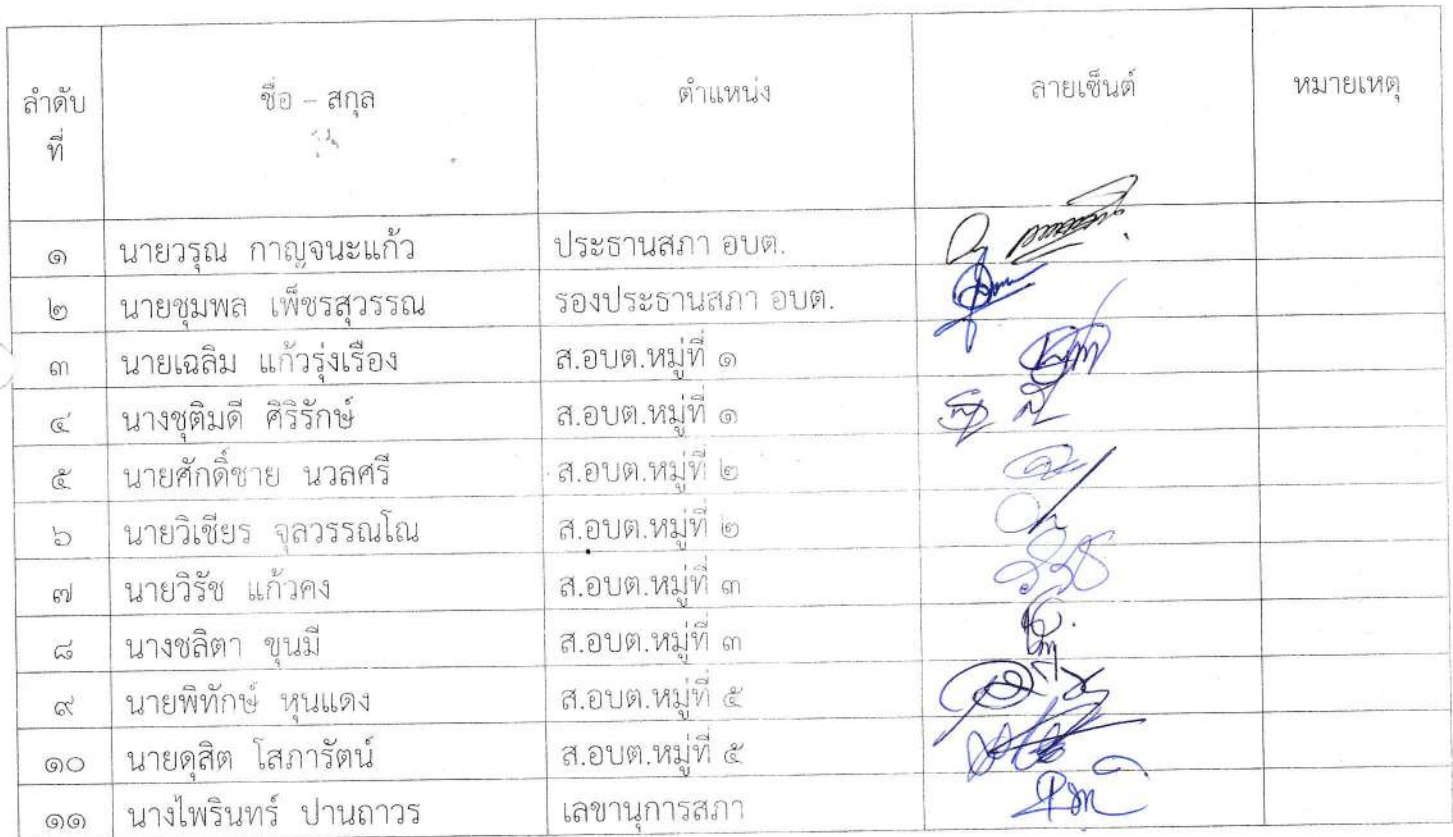 ลำดับที่ ชื่อ - สกุล ตำแหน่ง ลายเซ็นต์ หมายเหตุ
๑ นายวรุณ กาญจนะแก้ว ประธานสภา อบต.
๒ นายชุมพล เพ็ชรสุวรรณ รองประธานสภา อบต.
๓ นายเฉลิม แก้วรุ่งเรือง ส.อบต.หมู่ที่ ๑
๔ นางชุติมดี ศิริรักษ์ ส.อบต.หมู่ที่ ๑
๕ นายศักดิ์ชาย นวลศรี ส.อบต.หมู่ที่ ๒
๖ นายวิเชียร จุลวรรณโณ ส.อบต.หมู่ที่ ๒
๗ นายวิรัช แก้วคง ส.อบต.หมู่ที่ ๓
๘ นางชลิตา ขุนมี ส.อบต.หมู่ที่ ๓
๙ นายพิทักษ์ หุนแดง ส.อบต.หมู่ที่ ๕
๑๐ นายดุสิต โสภารัตน์ ส.อบต.หมู่ที่ ๕
๑๑ นางไพรินทร์ ปานถาวร เลขานุการสภา